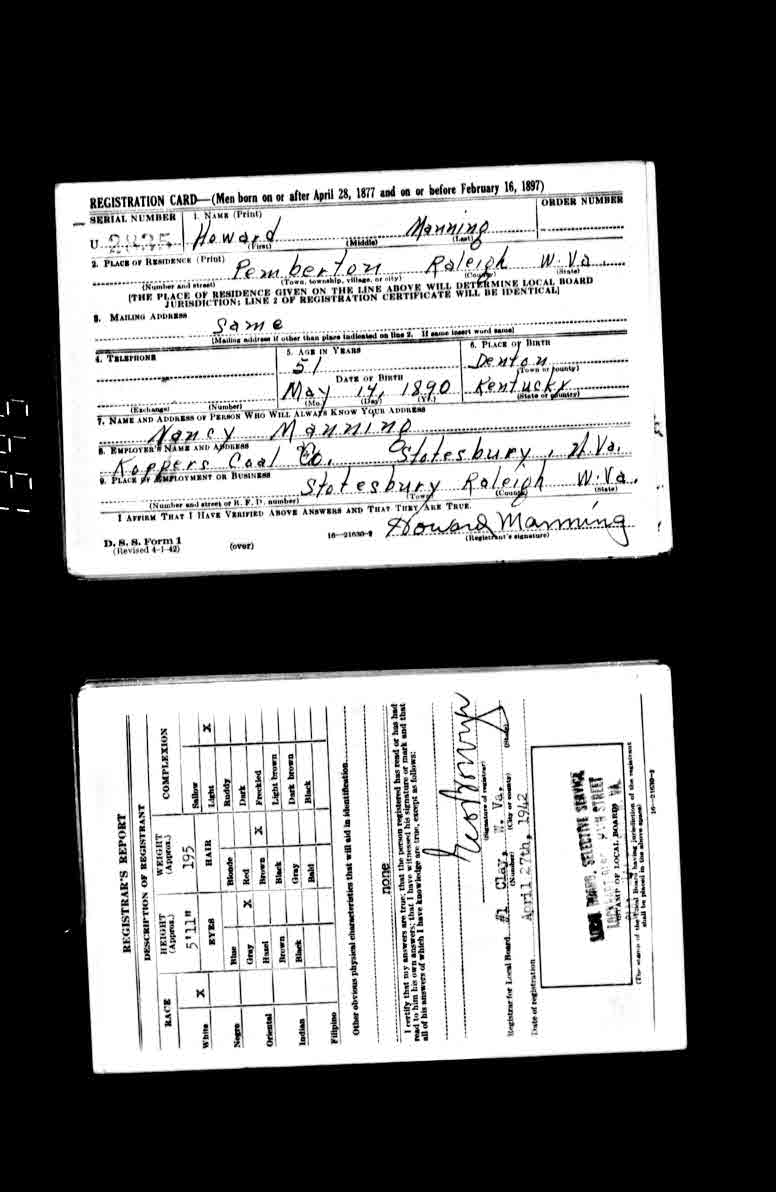 REGISTRATION CARD—(Men born on or after April 28, 1877 and on or before February 16, 1897)
SERIAL NUMBER 1. NAME (Print) ORDER NUMBER
U Howard Manning
(First) (Middle) (Last)
2. PLACE OF RESIDENCE (Print)
Pemberton Raleigh W. Va.
(Number and street) (Town, township, village, or city) (County) (State)
[THE PLACE OF RESIDENCE GIVEN ON THE LINE ABOVE WILL DETERMINE LOCAL BOARD
JURISDICTION; LINE 2 OF REGISTRATION CERTIFICATE WILL BE IDENTICAL]
3. MAILING ADDRESS
Same
[Mailing address if other than place indicated on line 2. If same insert word same]
4. TELEPHONE 5. AGE IN YEARS 6. PLACE OF BIRTH
51 Denton
(Town or county)
DATE OF BIRTH
May 14, 1890 Kentucky
(Exchange) (Number) (Mo.) (Day) (Yr.) (State or country)
7. NAME AND ADDRESS OF PERSON WHO WILL ALWAYS KNOW YOUR ADDRESS
Nancy Manning
8. EMPLOYER'S NAME AND ADDRESS
Koppers Coal Co. Stotesbury, W Va.
9. PLACE OF EMPLOYMENT OR BUSINESS
Stotesbury Raleigh W. Va.
(Number and street or R. F. D. number) (Town) (County) (State)
I AFFIRM THAT I HAVE VERIFIED ABOVE ANSWERS AND THAT THEY ARE TRUE.
Howard Manning
D. S. S. Form 1
(Revised 4-1-42) (over) 16—21630-2 (Registrant's signature)
REGISTRAR'S REPORT
DESCRIPTION OF REGISTRANT
RACE HEIGHT (Approx.) WEIGHT (Approx.) COMPLEXION
5'11" 195 Sallow
White X EYES HAIR Light X
Negro Blue Blonde Ruddy
Gray X Red Dark
Oriental Hazel Brown X Freckled
Brown Black Light brown
Indian Black Gray Dark brown
Bald Black
Filipino
Other obvious physical characteristics that will aid in identification
none
I certify that my answers are true; that the person registered has read or has had
read to him his own answers; that I have witnessed his signature or mark and that
all of his answers of which I have knowledge are true, except as follows:
(Signature of registrar)
Registrar for Local Board #1 Clay, W. Va.
(Number) (City or county) (State)
Date of registration April 27th, 1942
LOCAL BOARD, SELECTIVE SERVICE
STREET
(STAMP OF LOCAL BOARD)
(The stamp of the Local Board having jurisdiction of the registrant
shall be placed in the above space)
16—21630-2